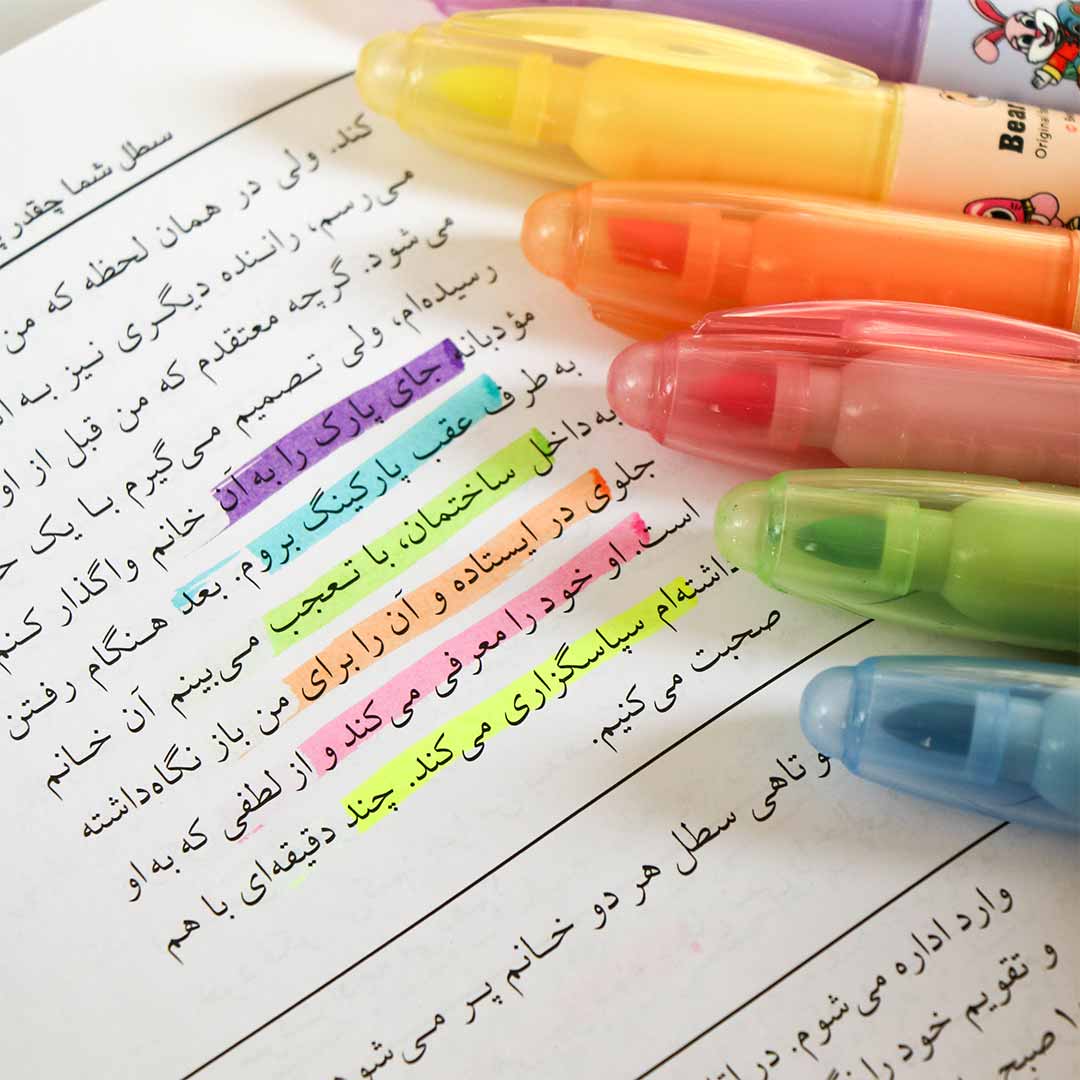 سطل شما چقدر
کند. ولی در همان لحظه که من
می‌رسم، راننده دیگری نیز به
می‌شود. گرچه معتقدم که من قبل از او
رسیده‌ام، ولی تصمیم می‌گیرم با یک
مؤدبانه جای پارک را به آن خانم واگذار کنم
به طرف عقب پارکینگ بروم. بعد هنگام رفتن
به داخل ساختمان، با تعجب می‌بینم آن خانم
جلوی در ایستاده و آن را برای من باز نگاه‌داشته
است. او خود را معرفی می‌کند و از لطفی که به او
داشته‌ام سپاسگزاری می‌کند. چند دقیقه‌ای با هم
صحبت می‌کنیم.
تاهی سطل هر دو خانم پر می‌شود
وارد اداره می‌شوم. در
و تقویم خود را
صبح
Bear
Original